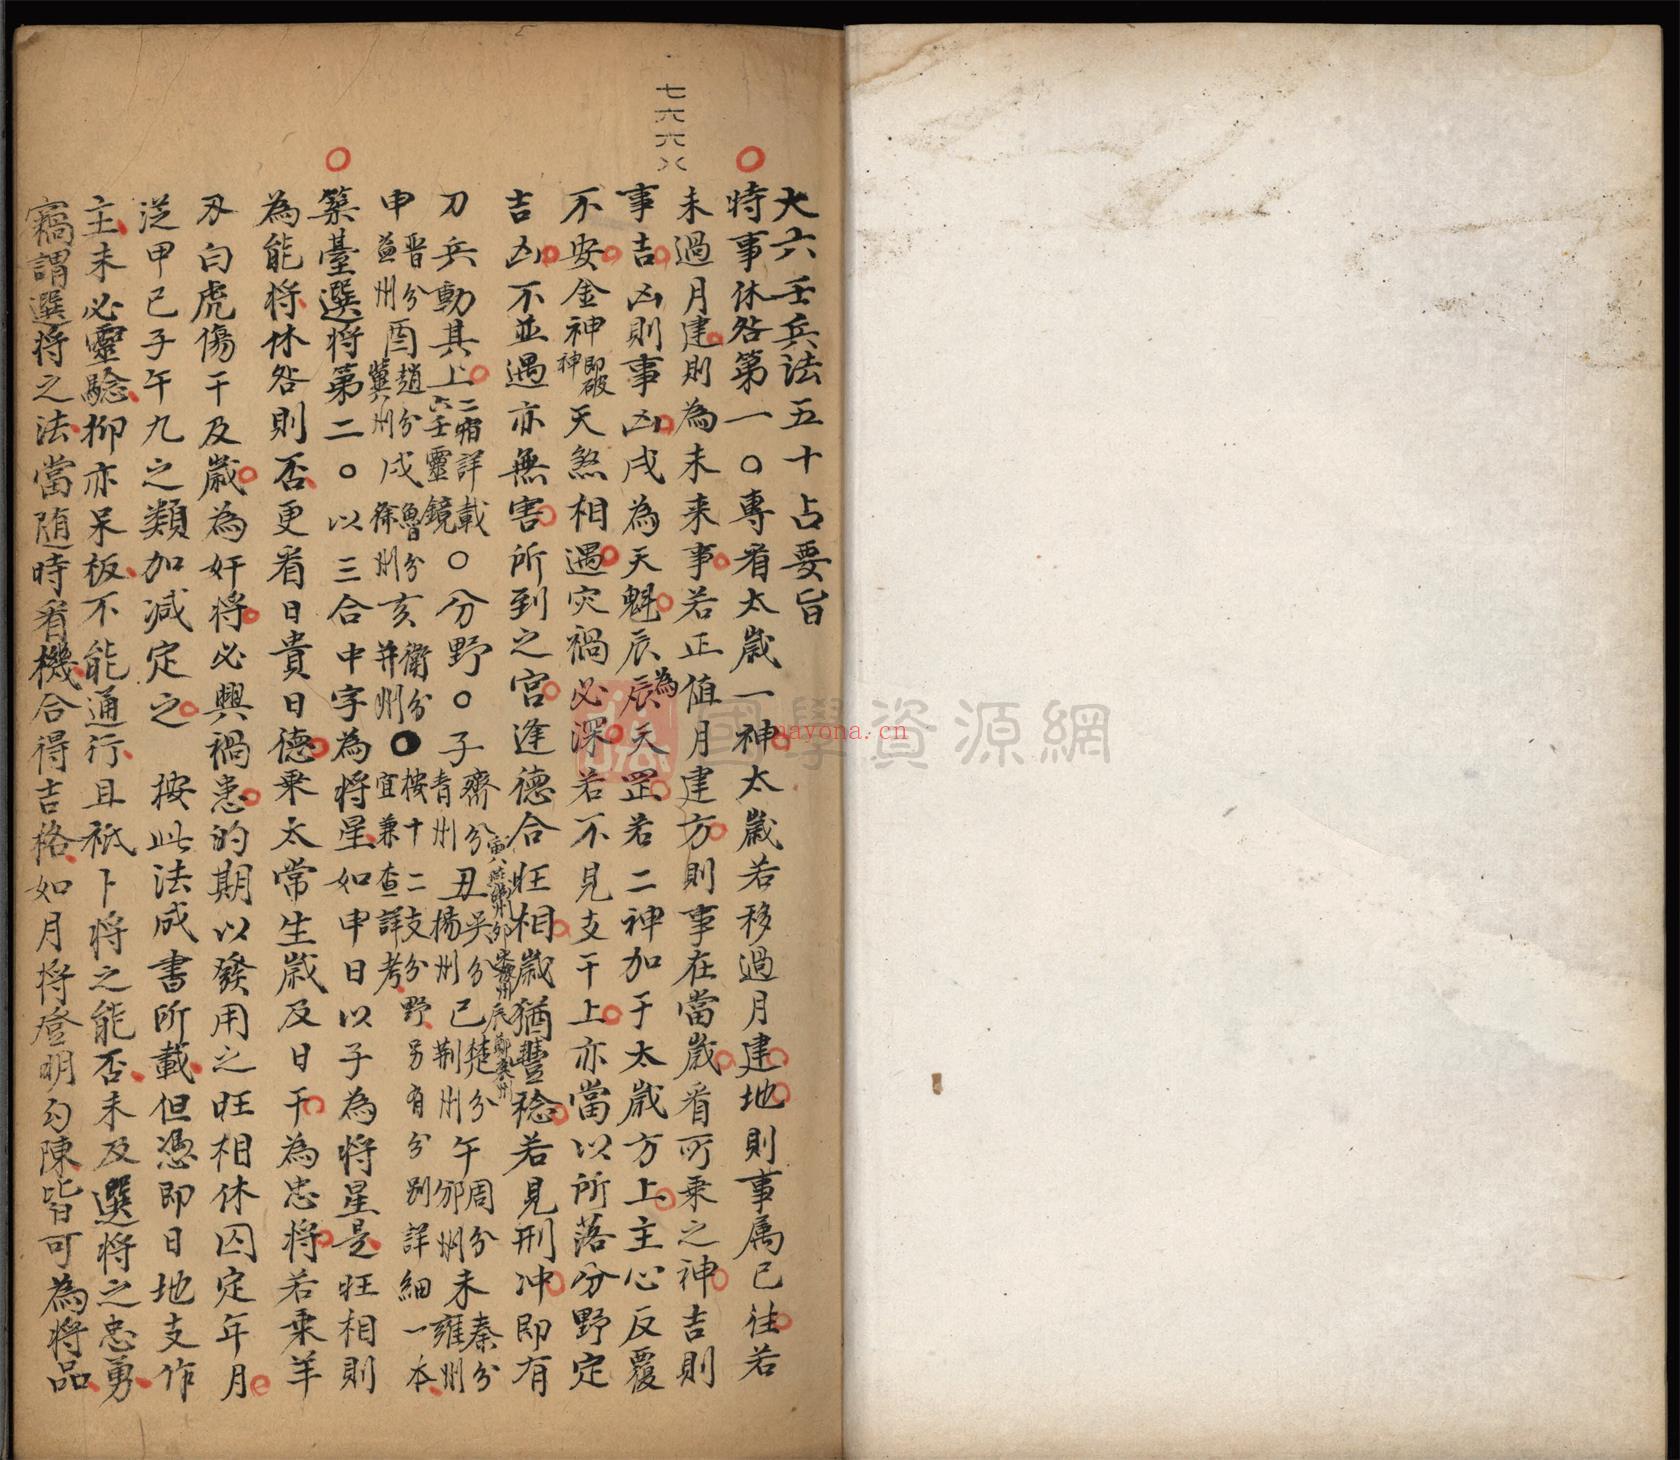 七六六八
大六壬兵法五十占要旨
時事休咎第一〇專看太歲一神太歲若移過月建地則事属已往若
未過月建則為未来事若正值月建方則事在當歲看所乘之神吉則
事吉凶則事凶戌為天魁辰為天罡若二神加于太歲方上主心反覆
不安金神即破神天煞相遇灾禍必深若不見支干上亦當以所落分野定
吉凶不並遇亦無害所到之宫逢德合旺相歲猶豐稔若見刑冲即有
刀兵動其上二宿詳載六壬靈鏡〇分野〇子齊分青州丑吳分楊州巳楚分荆州午周分邠州未秦分雍州
申晋分益州酉趙分冀州戌魯分徐州亥衛分并州●按十二支分野另有分别詳細一本宜兼查詳考
築臺選将第二〇以三合中字為将星如申日以子為将星是旺相則
為能将休咎則否更看日貴日德乘太常生歲及日干為忠将若乘羊
刃白虎傷干及歲為奸将必興禍患的期以發用之旺相休囚定年月
泛甲己子午九之類加减定之 按此法成書所載但憑即日地支作
主未必靈驗抑亦呆板不能通行且祇卜将之能否未及選将之忠勇
竊謂選将之法當随時看機合得吉格如月将登明勾陳皆可為将品
國學資源網
nayona.cn